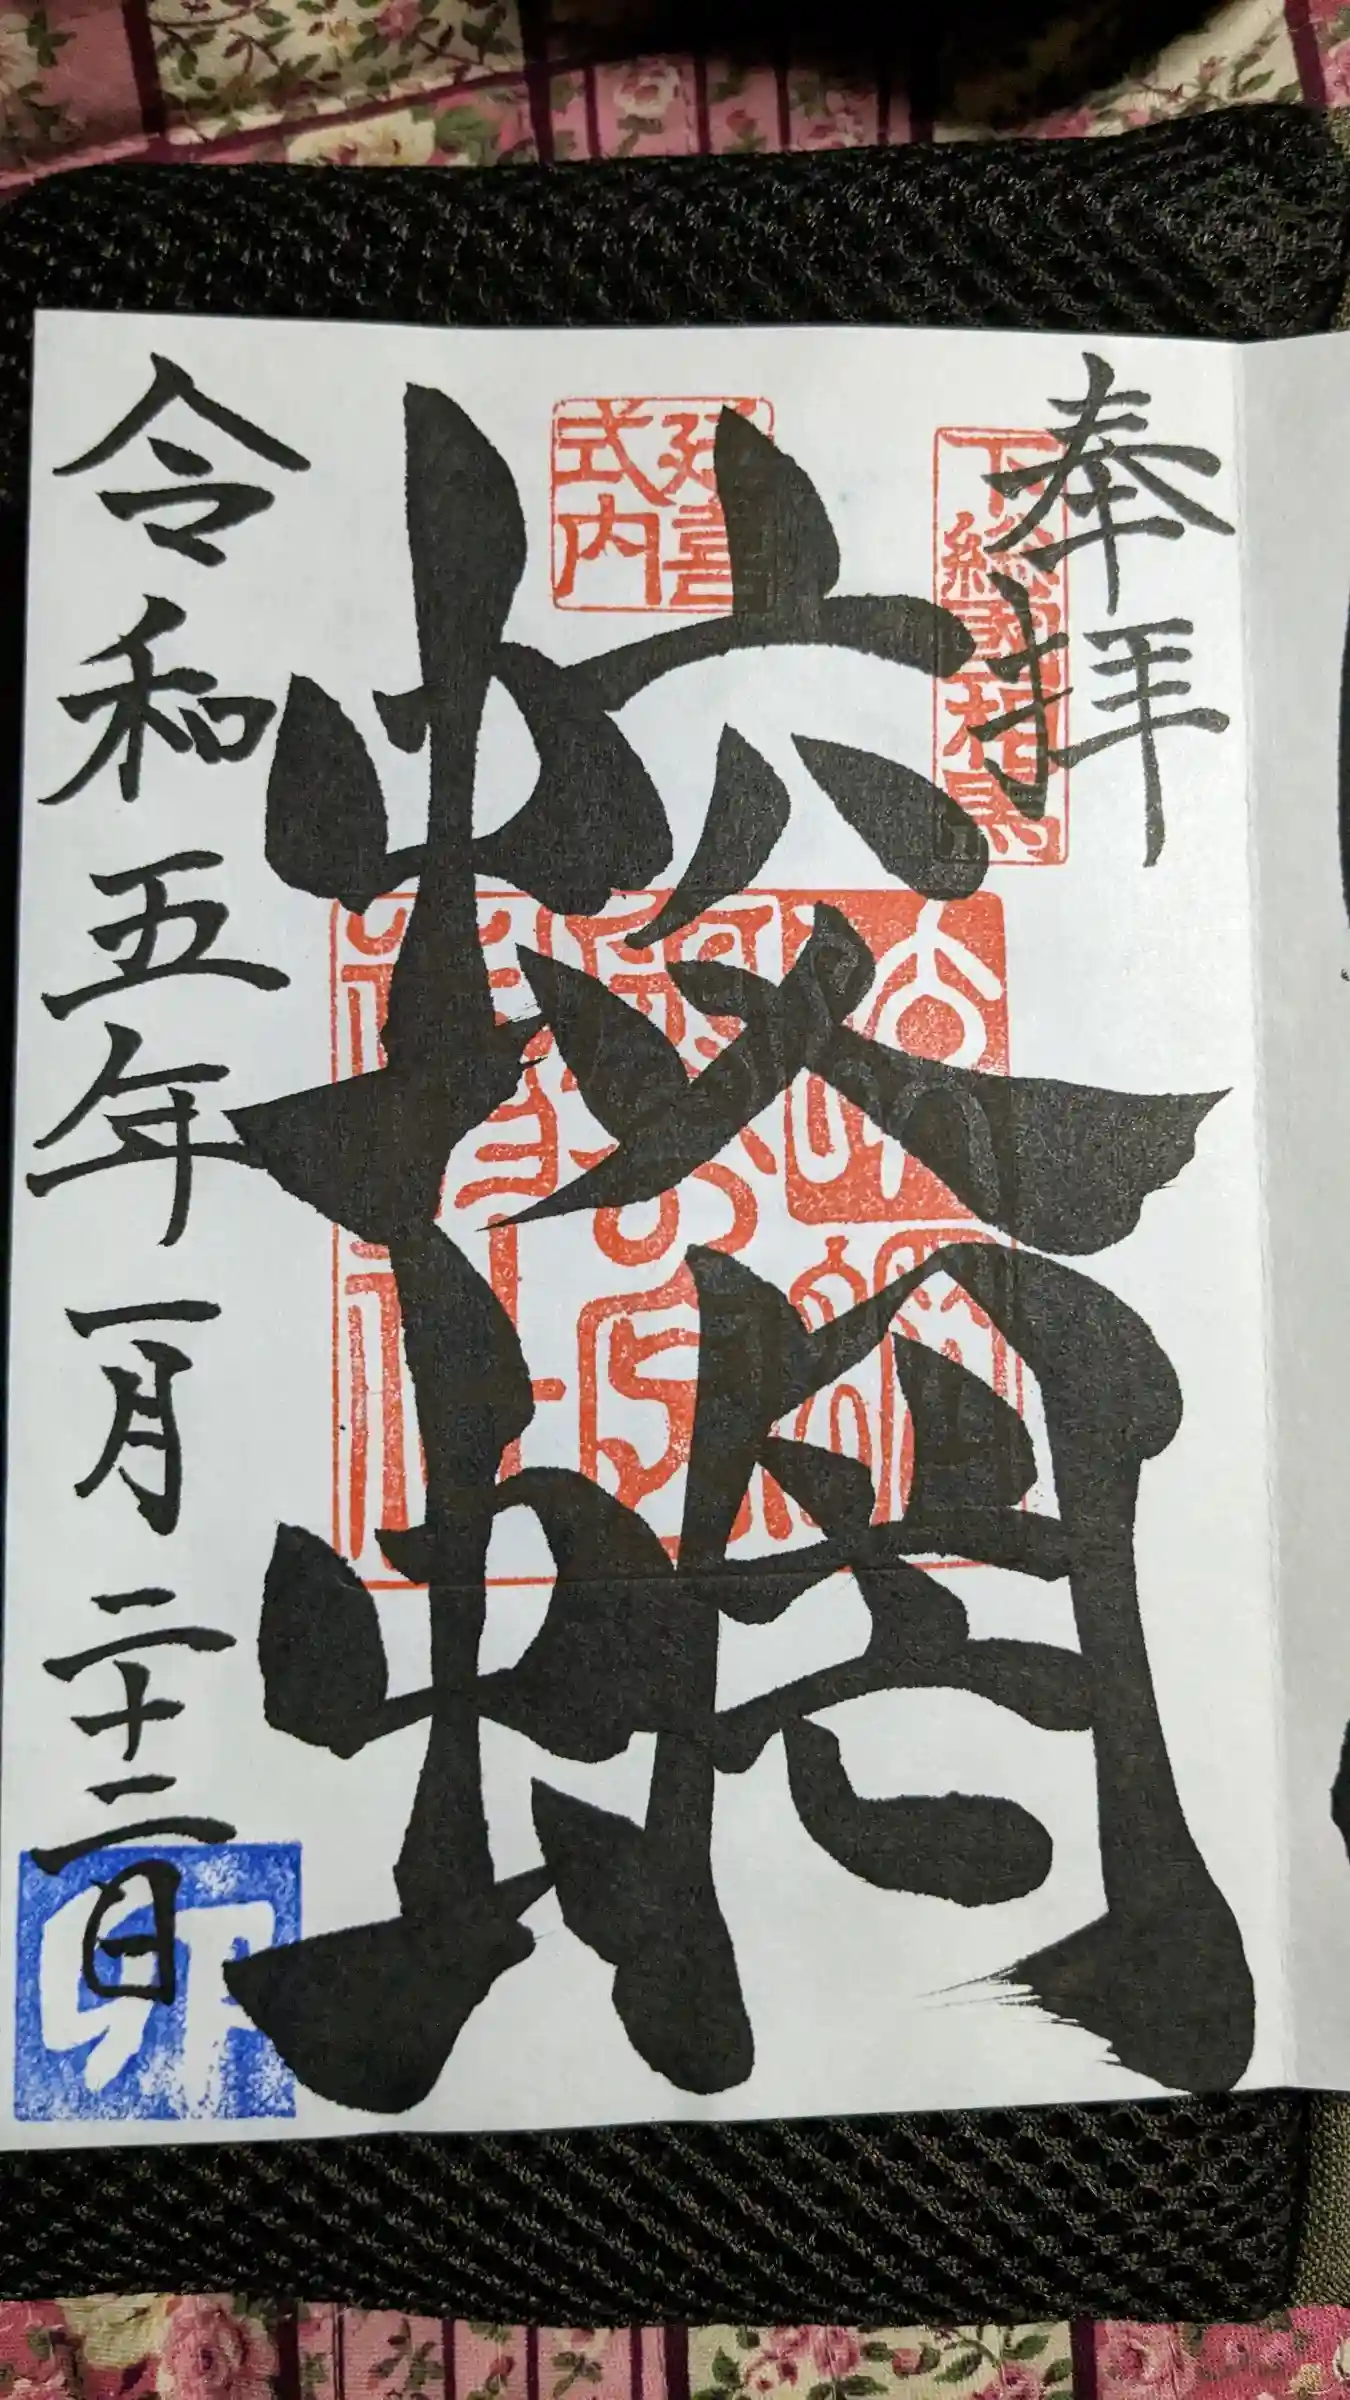 奉拝
下総國相馬
延喜
式内
蛟蝄
令和五年一月二十二日
卯